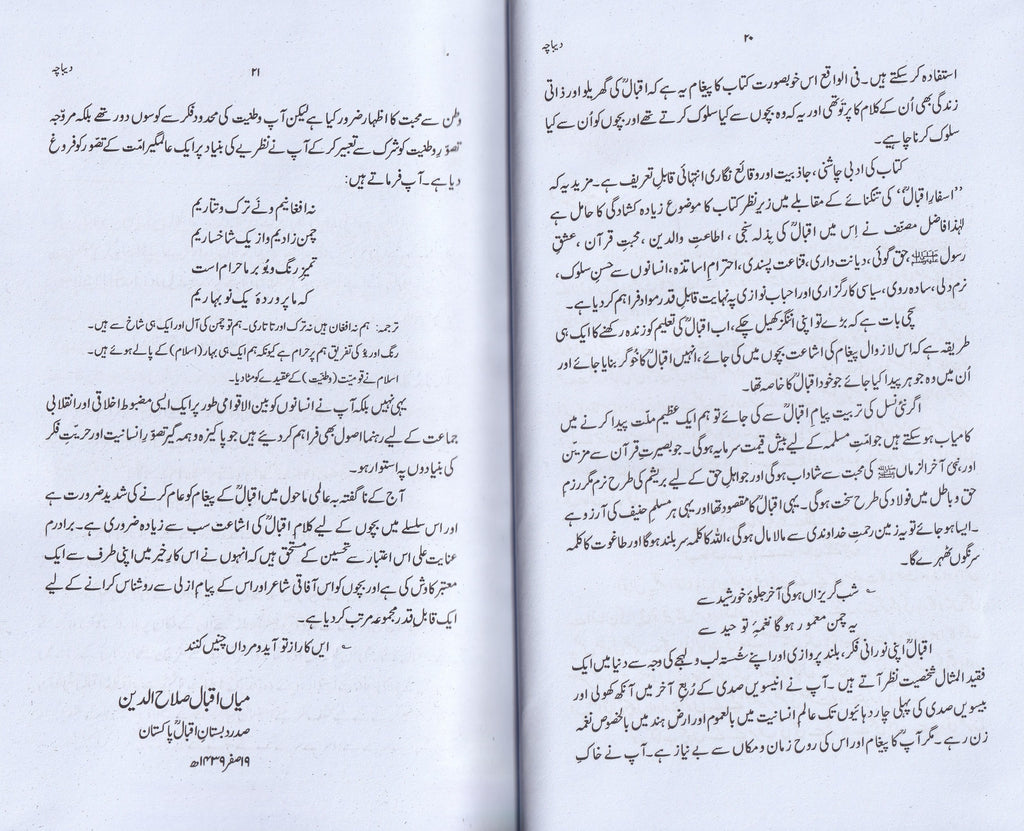 ۲۰
دیباچہ
استفادہ کر سکتے ہیں۔ فی الواقع اس خوبصورت کتاب کا پیغام یہ ہے کہ اقبالؒ کی گھریلو اور ذاتی
زندگی بھی اُن کے کلام کا پرتو تھی اور یہ کہ وہ بچوں سے کیا سلوک کرتے تھے اور بچوں کو اُن سے کیا
سلوک کرنا چاہیے۔
کتاب کی ادبی چاشنی، جاذبیت اور وقائع نگاری انتہائی قابلِ تعریف ہے۔ مزید یہ کہ
’’اسفارِ اقبالؒ‘‘ کی تنگنائے کے مقابلے میں زیرِ نظر کتاب کا موضوع زیادہ کشادگی کا حامل ہے
لہٰذا فاضل مصنف نے اِس میں اقبالؒ کی بذلہ سنجی، اطاعتِ والدین، محبتِ قرآن، عشقِ
رسول ﷺ، حق گوئی، دیانت داری، قناعت پسندی، احترامِ اساتذہ، انسانوں سے حسنِ سلوک،
نرم دلی، سادہ روی، سیاسی کارگزاری اور احباب نوازی پہ نہایت قابلِ قدر مواد فراہم کر دیا ہے۔
سچی بات ہے کہ بڑے تو اپنی اننگز کھیل چکے، اب اقبالؒ کی تعلیم کو زندہ رکھنے کا ایک ہی
طریقہ ہے کہ اس لازوال پیغام کی اشاعت بچوں میں کی جائے، انہیں اقبالؒ کا خوگر بنایا جائے اور
اُن میں وہ جوہر پیدا کیا جائے جو خود اقبالؒ کا خاصہ تھا۔
اگر نئی نسل کی تربیت پیامِ اقبالؒ سے کی جائے تو ہم ایک عظیم ملّت پیدا کرنے میں
کامیاب ہو سکتے ہیں جو امتِ مسلمہ کے لیے بیش قیمت سرمایہ ہوگی۔ جو بصیرتِ قرآن سے مزیّن
اور نبی آخر الزماں ﷺ کی محبت سے شاداب ہوگی اور جو اہلِ حق کے لیے بریشم کی طرح نرم مگر رزمِ
حق و باطل میں فولاد کی طرح سخت ہوگی۔ یہی اقبالؒ کا مقصود تھا اور یہی ہر مسلمِ حنیف کی آرزو ہے
۔ ایسا ہو جائے تو یہ زمین رحمتِ خداوندی سے مالا مال ہوگی، اللہ کا کلمہ سربلند ہوگا اور طاغوت کا کلمہ
سرنگوں ٹھہرے گا۔
؎ شب گریزاں ہوگی آخر جلوۂ خورشید سے
یہ چمن معمور ہوگا نغمۂ توحید سے
اقبالؒ اپنی نورانی فکر، بلند پروازی اور اپنے شُستہ لب و لہجے کی وجہ سے دنیا میں ایک
فقید المثال شخصیت نظر آتے ہیں۔ آپ نے انیسویں صدی کے رُبعِ آخر میں آنکھ کھولی اور
بیسویں صدی کی پہلی چار دہائیوں تک عالمِ انسانیت میں بالعموم اور ارضِ ہند میں بالخصوص نغمہ
زن رہے۔ مگر آپؒ کا پیغام اور اس کی روح زمان و مکاں سے بے نیاز ہے۔ آپ نے خاکِ
۲۱
دیباچہ
وطن سے محبت کا اظہار ضرور کیا ہے لیکن آپ وطنیت کی محدود فکر سے کوسوں دور تھے بلکہ مروّجہ
تصوّرِ وطنیت کو شرک سے تعبیر کر کے آپ نے نظریے کی بنیاد پر ایک عالمگیر امت کے تصور کو فروغ
دیا ہے۔ آپ فرماتے ہیں:
نہ افغانیم و نے ترک و تتاریم
چمن زادیم و از یک شاخساریم
تمیزِ رنگ و بُو بر ما حرام است
کہ ما پروردۂ یک نو بہاریم
ترجمہ: ہم نہ افغان ہیں نہ ترک اور تاتاری۔ ہم تو چمن کی آل اور ایک ہی شاخ سے ہیں۔
رنگ اور بُو کی تفریق ہم پر حرام ہے کیونکہ ہم ایک ہی بہار (اسلام) کے پالے ہوئے ہیں۔
اسلام نے قومیّت (وطنیّت) کے عقیدے کو مٹا دیا۔
یہی نہیں بلکہ آپ نے انسانوں کو بین الاقوامی طور پر ایک ایسی مضبوط اخلاقی اور انقلابی
جماعت کے لیے رہنما اصول بھی فراہم کر دیئے ہیں جو پاکیزہ و ہمہ گیر تصوّرِ انسانیت اور حریتِ فکر
کی بنیادوں پہ استوار ہو۔
آج کے ناگفتہ بہ عالمی ماحول میں اقبالؒ کے پیغام کو عام کرنے کی شدید ضرورت ہے
اور اس سلسلے میں بچوں کے لیے کلامِ اقبالؒ کی اشاعت سب سے زیادہ ضروری ہے۔ برادرم
عنایت علی اس اعتبار سے تحسین کے مستحق ہیں کہ انہوں نے اس کارِ خیر میں اپنی طرف سے ایک
معتبر کاوش کی ہے اور بچوں کو اس آفاقی شاعر اور اس کے پیامِ ازلی سے روشناس کرانے کے لیے
ایک قابلِ قدر مجموعہ مرتب کر دیا ہے۔
؎ ایں کار از تو آید و مرداں چنیں کنند
میاں اقبال صلاح الدین
صدر دبستانِ اقبالؒ پاکستان
۱۹ صفر ۱۴۳۹ھ